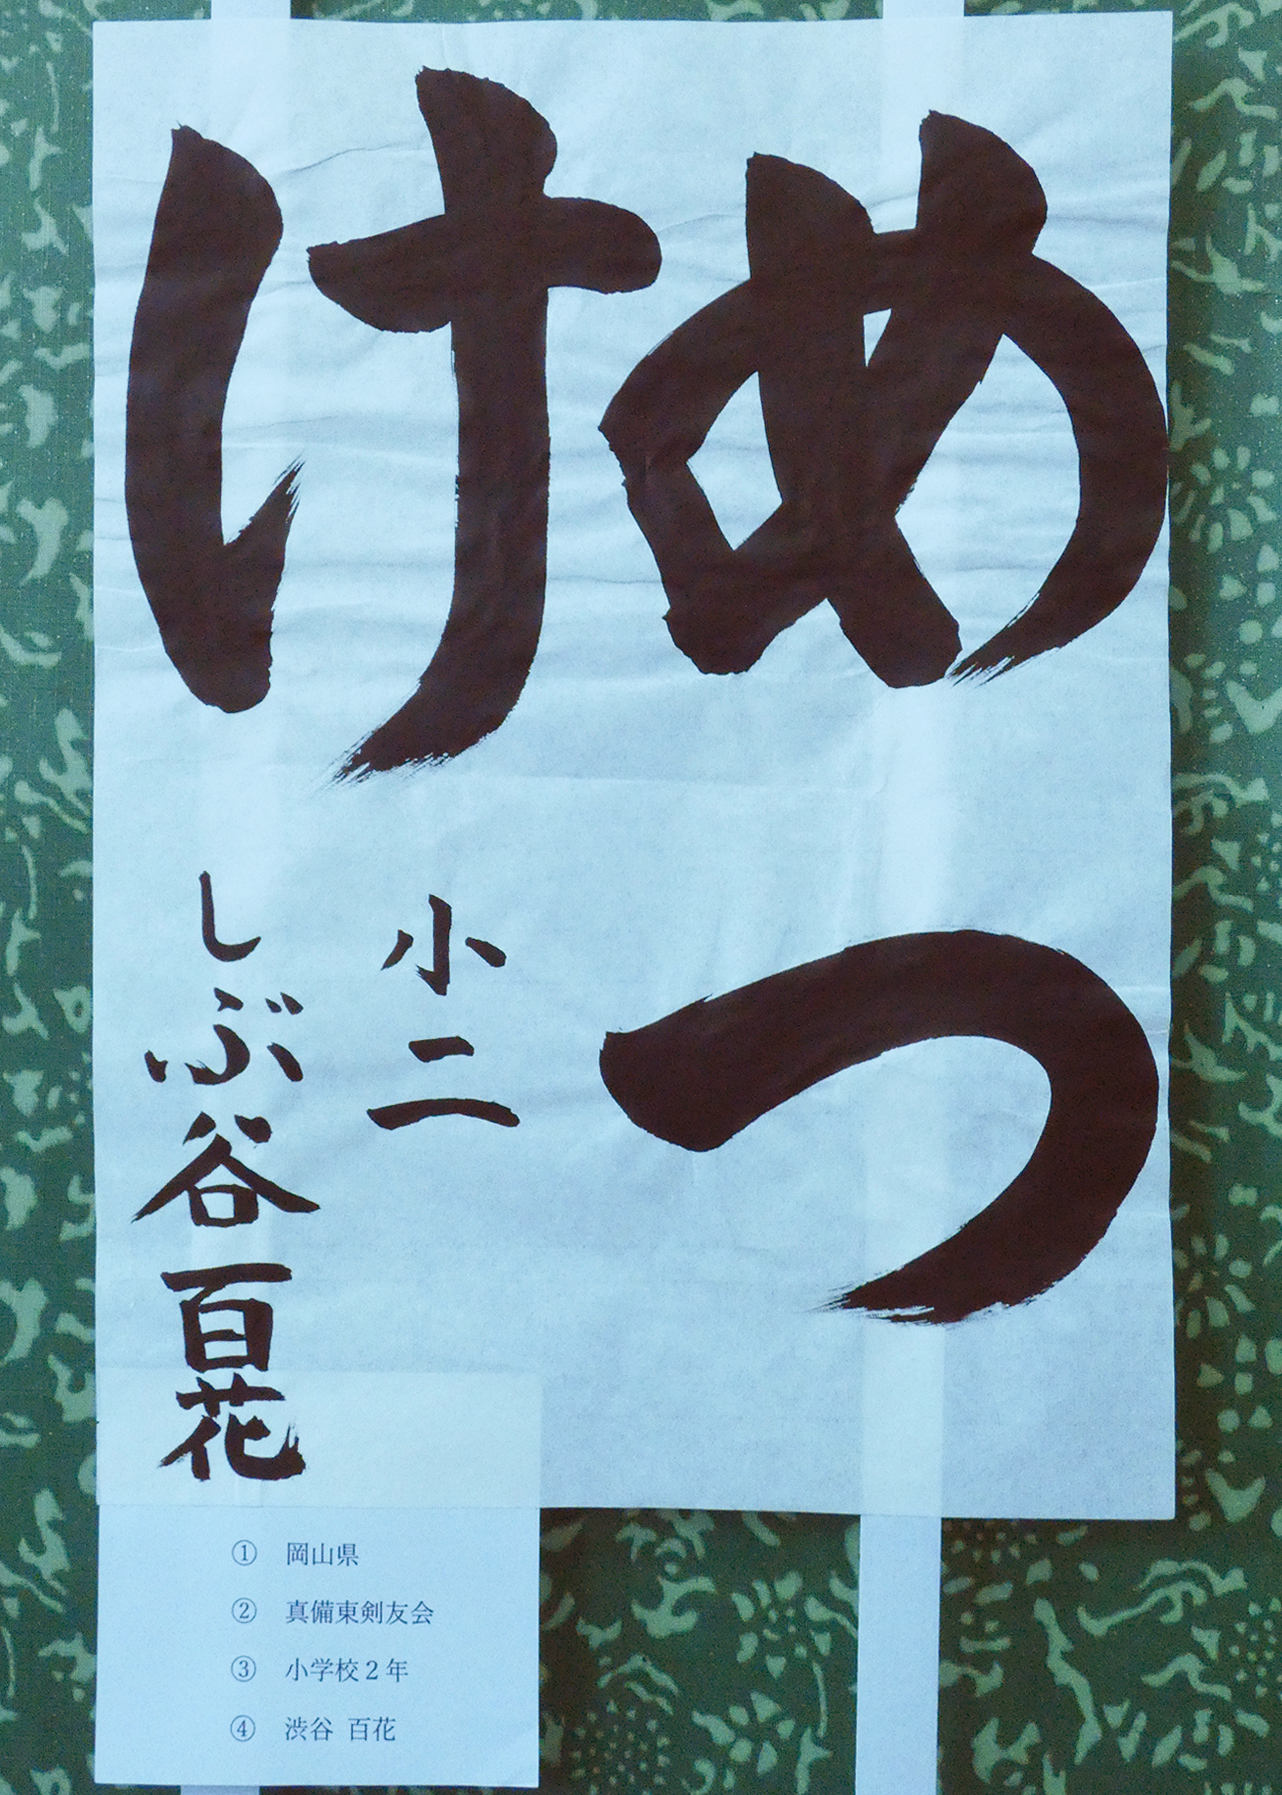 めつ
け
小二
しぶ谷百花
① 岡山県
② 真備東剣友会
③ 小学校2年
④ 渋谷 百花